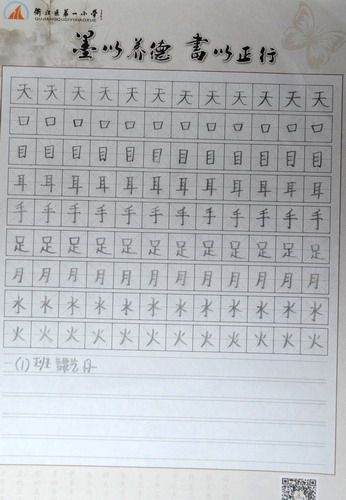 衢江区第一小学
QUJIANGQUDIYIXIAOXUE
墨以养德 書以正行
天 天 天 天 天 天 天 天 天 天 天 天
口 口 口 口 口 口 口 口 口 口 口 口
目 目 目 目 目 目 目 目 目 目 目 目
耳 耳 耳 耳 耳 耳 耳 耳 耳 耳 耳 耳
手 手 手 手 手 手 手 手 手 手 手 手
足 足 足 足 足 足 足 足 足 足 足 足
月 月 月 月 月 月 月 月 月 月 月 月
水 水 水 水 水 水 水 水 水 水 水 水
火 火 火 火 火 火 火 火 火 火 火 火
一(1)班